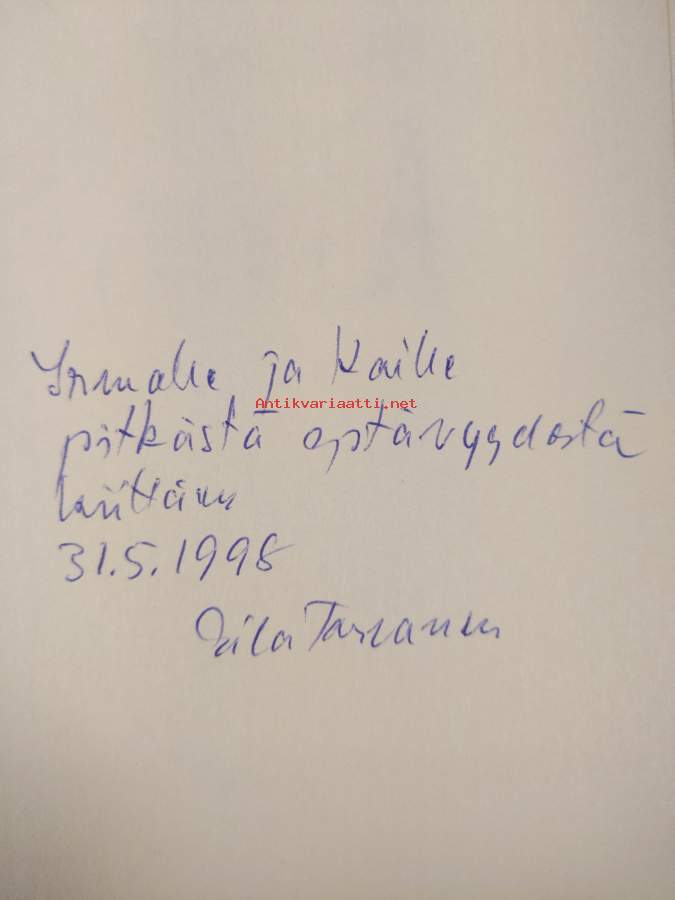 Irmalle ja Kaille
Antikvariaatti.net
pitkästä ystävyydestä
kiittäen
31.5.1998